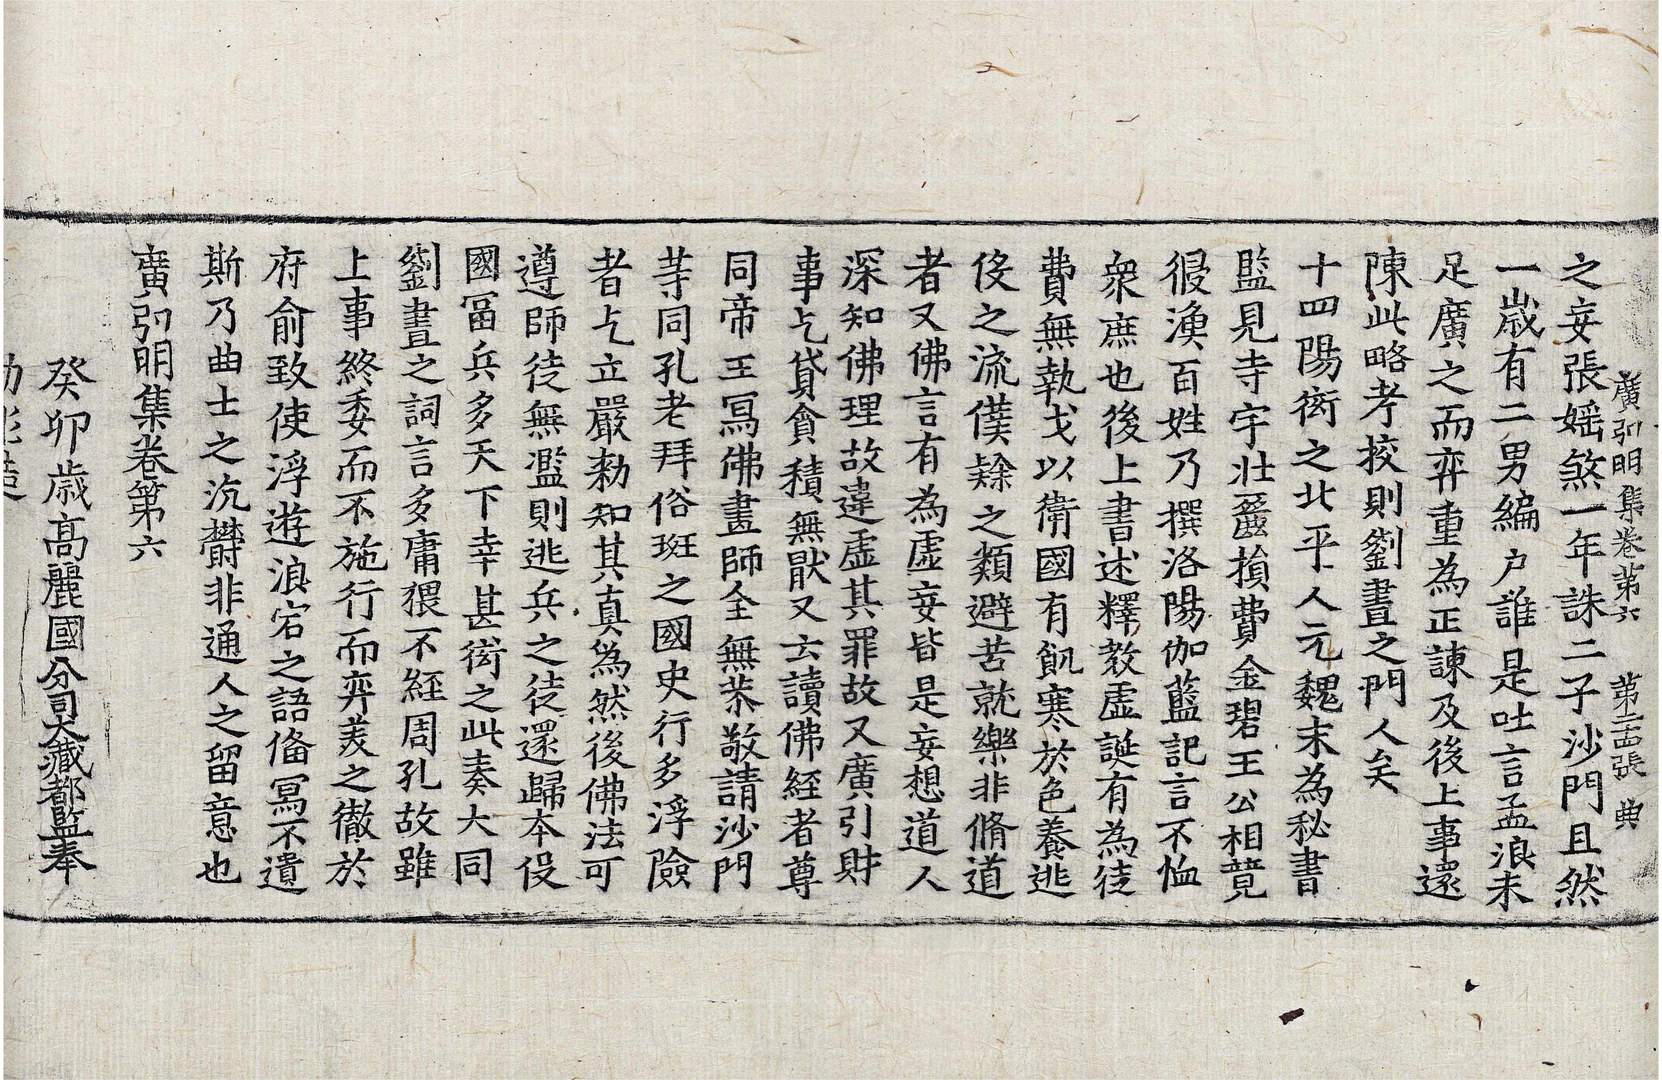 廣弘明集卷第六 第二十四張 典
之妄張媱煞一年誅二子沙門且然
一歲有二男編戶誰是吐言孟浪未
足廣之而弃重為正諫及後上事還
陳此略考挍則劉晝之門人矣
十四陽衒之北平人元魏末為秘書
監見寺宇壯麗損費金碧王公相競
侵漁百姓乃撰洛陽伽藍記言不恤
衆庶也後上書述釋教虛誕有為徒
費無執戈以衛國有飢寒於色養逃
役之流僕隸之類避苦就樂非脩道
者又佛言有為虛妄皆是妄想道人
深知佛理故違虛其罪故又廣引財
事乞貸貪積無猒又云讀佛經者尊
同帝王寫佛畫師全無恭敬請沙門
等同孔老拜俗班之國史行多浮險
者乞立嚴勑知其真偽然後佛法可
遵師徒無濫則逃兵之徒還歸本役
國富兵多天下幸甚衒之此奏大同
劉晝之詞言多庸猥不經周孔故雖
上事終委而不施行而弈美之徹於
府俞致使浮遊浪宕之語俻寫不遺
斯乃曲士之沉欝非通人之留意也
廣弘明集卷第六
癸卯歲高麗國分司大藏都監奉